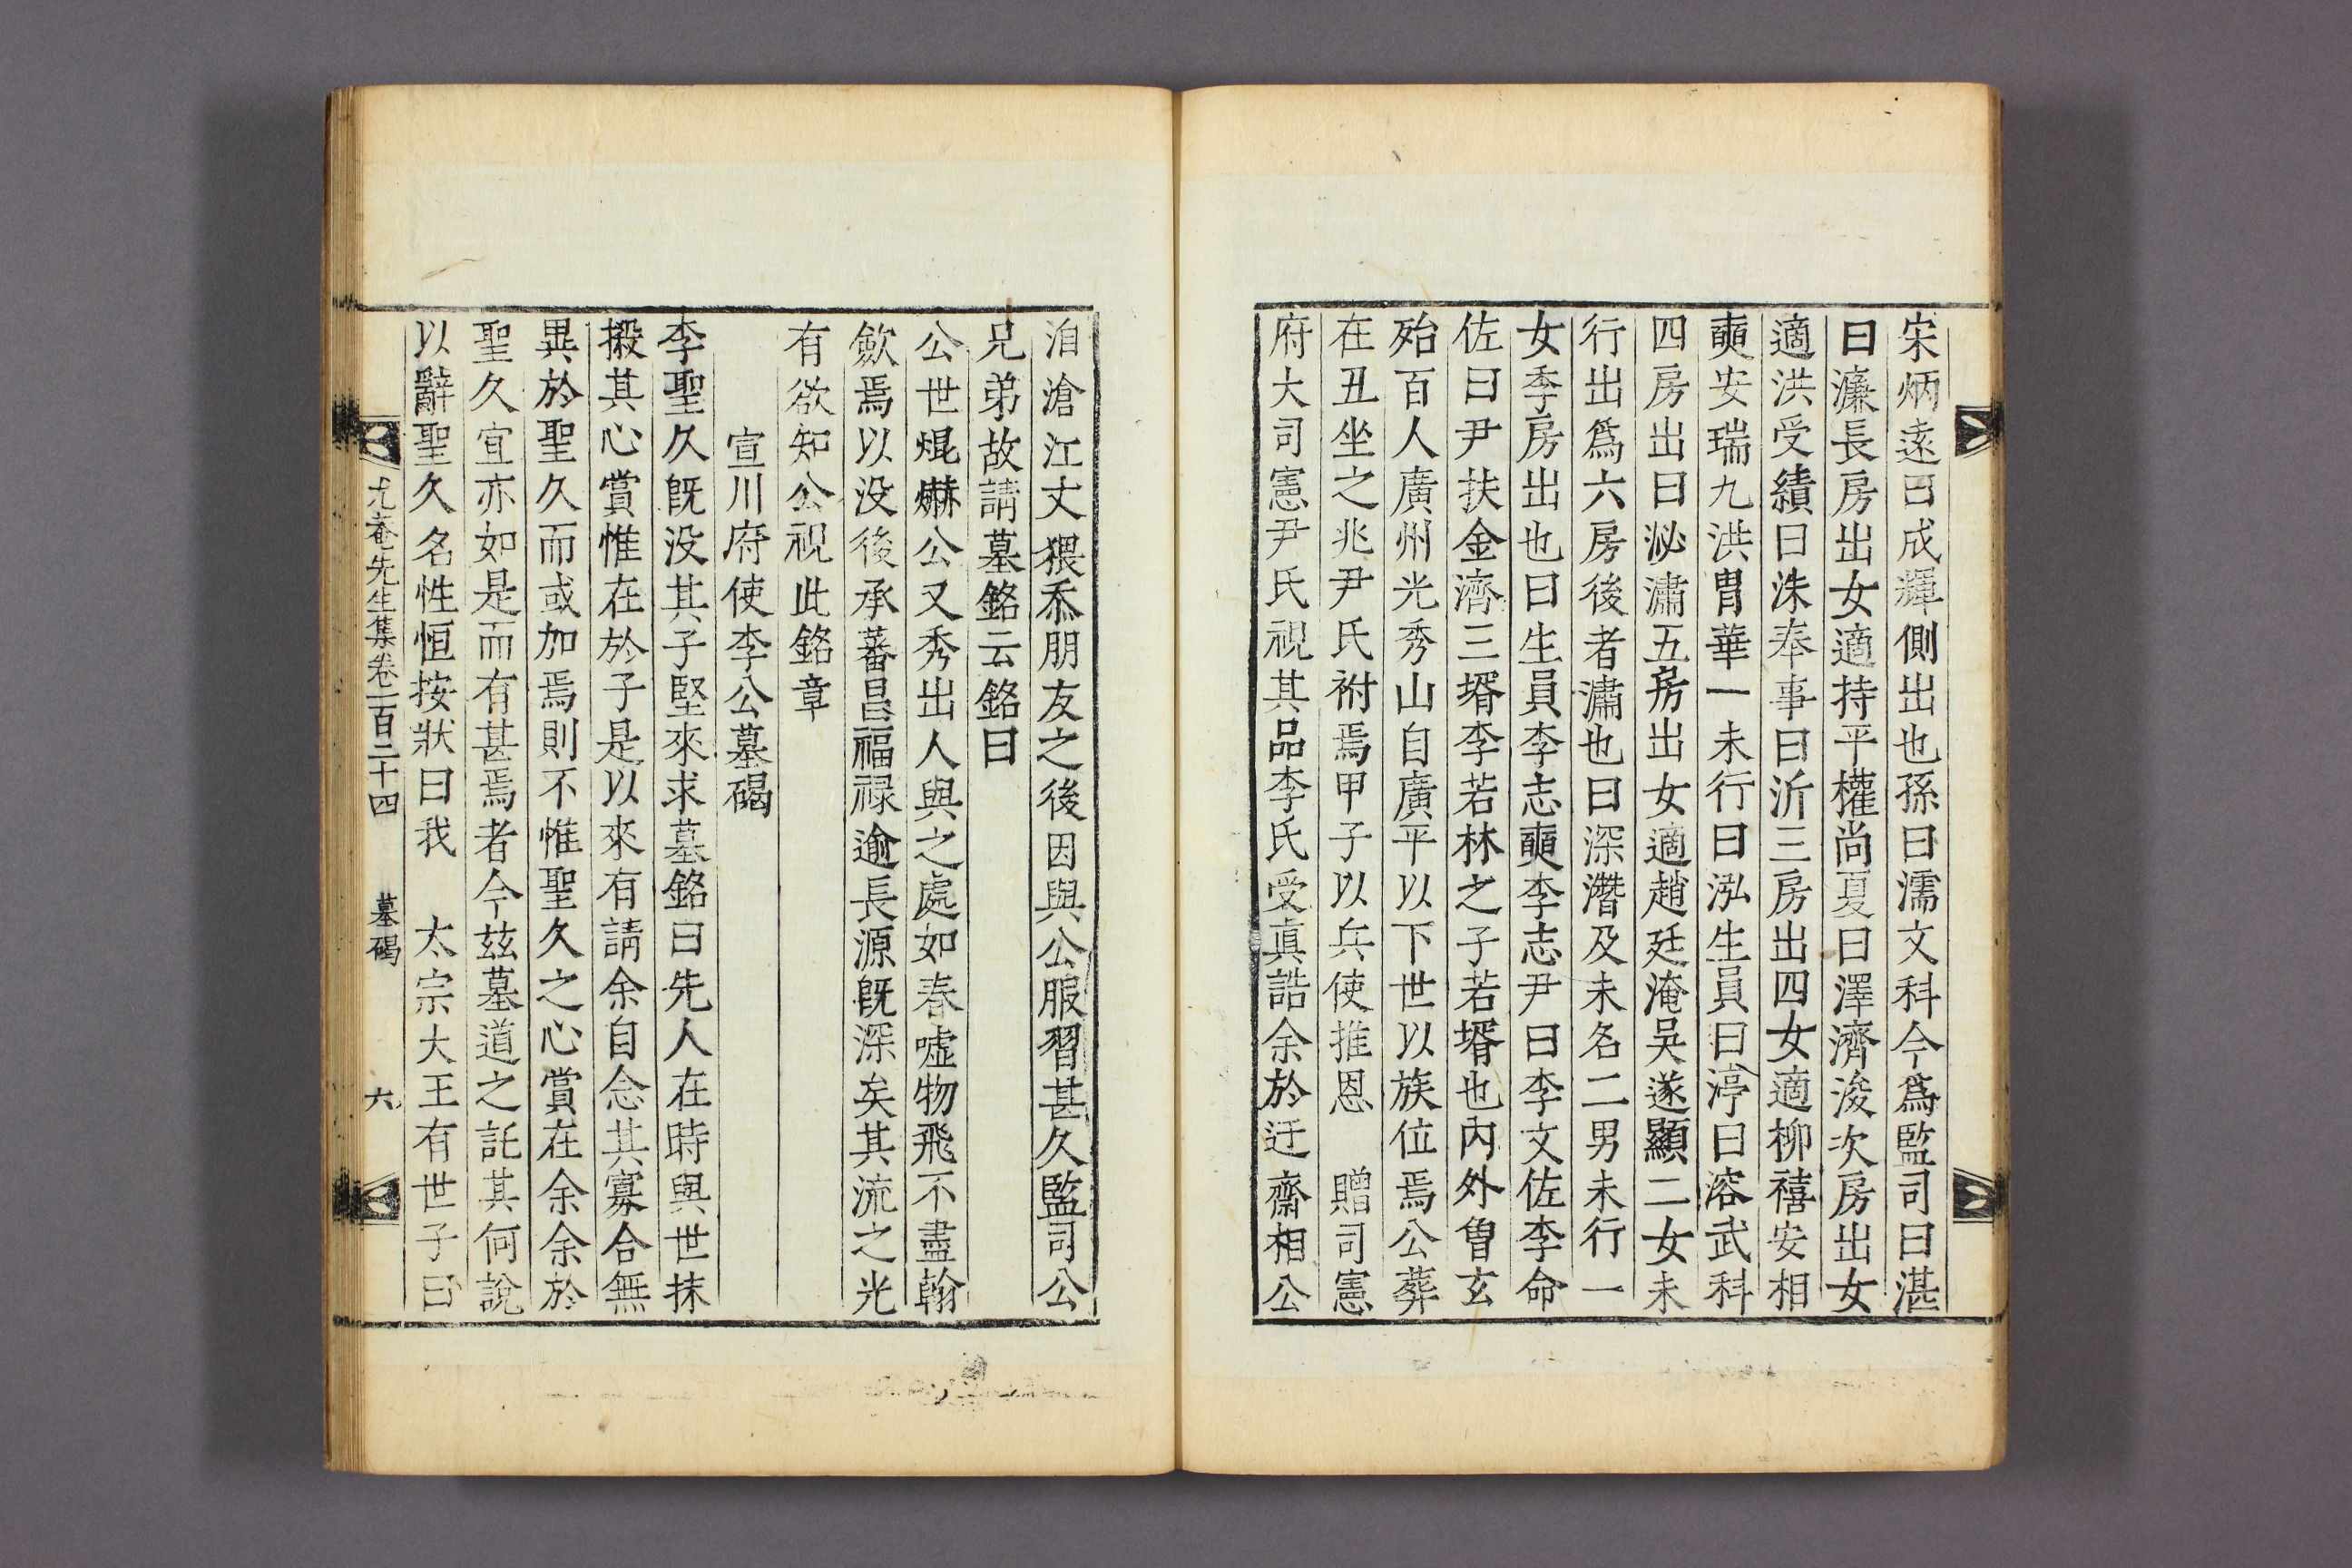 宋炳遠曰成輝側出也孫曰濡文科今爲監司曰湛
曰濂長房出女適持平權尚夏曰澤濟浚次房出女
適洪受績曰洙奉事曰沂三房出四女適柳禧安相
奭安瑞九洪胄華一未行曰泓生員曰渟曰溶武科
四房出曰泌潚五房出女適趙廷淹吳遂顯二女未
行出爲六房後者潚也曰深濳及未名二男未行一
女季房出也曰生員李志奭李志尹曰李文佐李命
佐曰尹扶金濟三壻李若林之子若壻也內外曾玄
殆百人廣州光秀山自廣平以下世以族位焉公葬
在丑坐之兆尹氏祔焉甲子以兵使推恩　贈司憲
府大司憲尹氏視其品李氏受眞誥余於迂齋相公
洎滄江丈猥忝朋友之後因與公服習甚久監司公
兄弟故請墓銘云銘曰
公世焜爀公又秀出人與之處如春噓物飛不盡翰
歛焉以没後承蕃昌福祿逾長源旣深矣其流之光
有欲知公視此銘章
宣川府使李公墓碣
李聖久旣没其子堅來求墓銘曰先人在時與世抹
摋其心賞惟在於子是以來有請余自念其寡合無
異於聖久而或加焉則不惟聖久之心賞在余余於
聖久宜亦如是而有甚焉者今玆墓道之託其何說
以辭聖久名性恒按狀曰我　太宗大王有世子曰
尤菴先生集卷一百二十四　墓碣　六